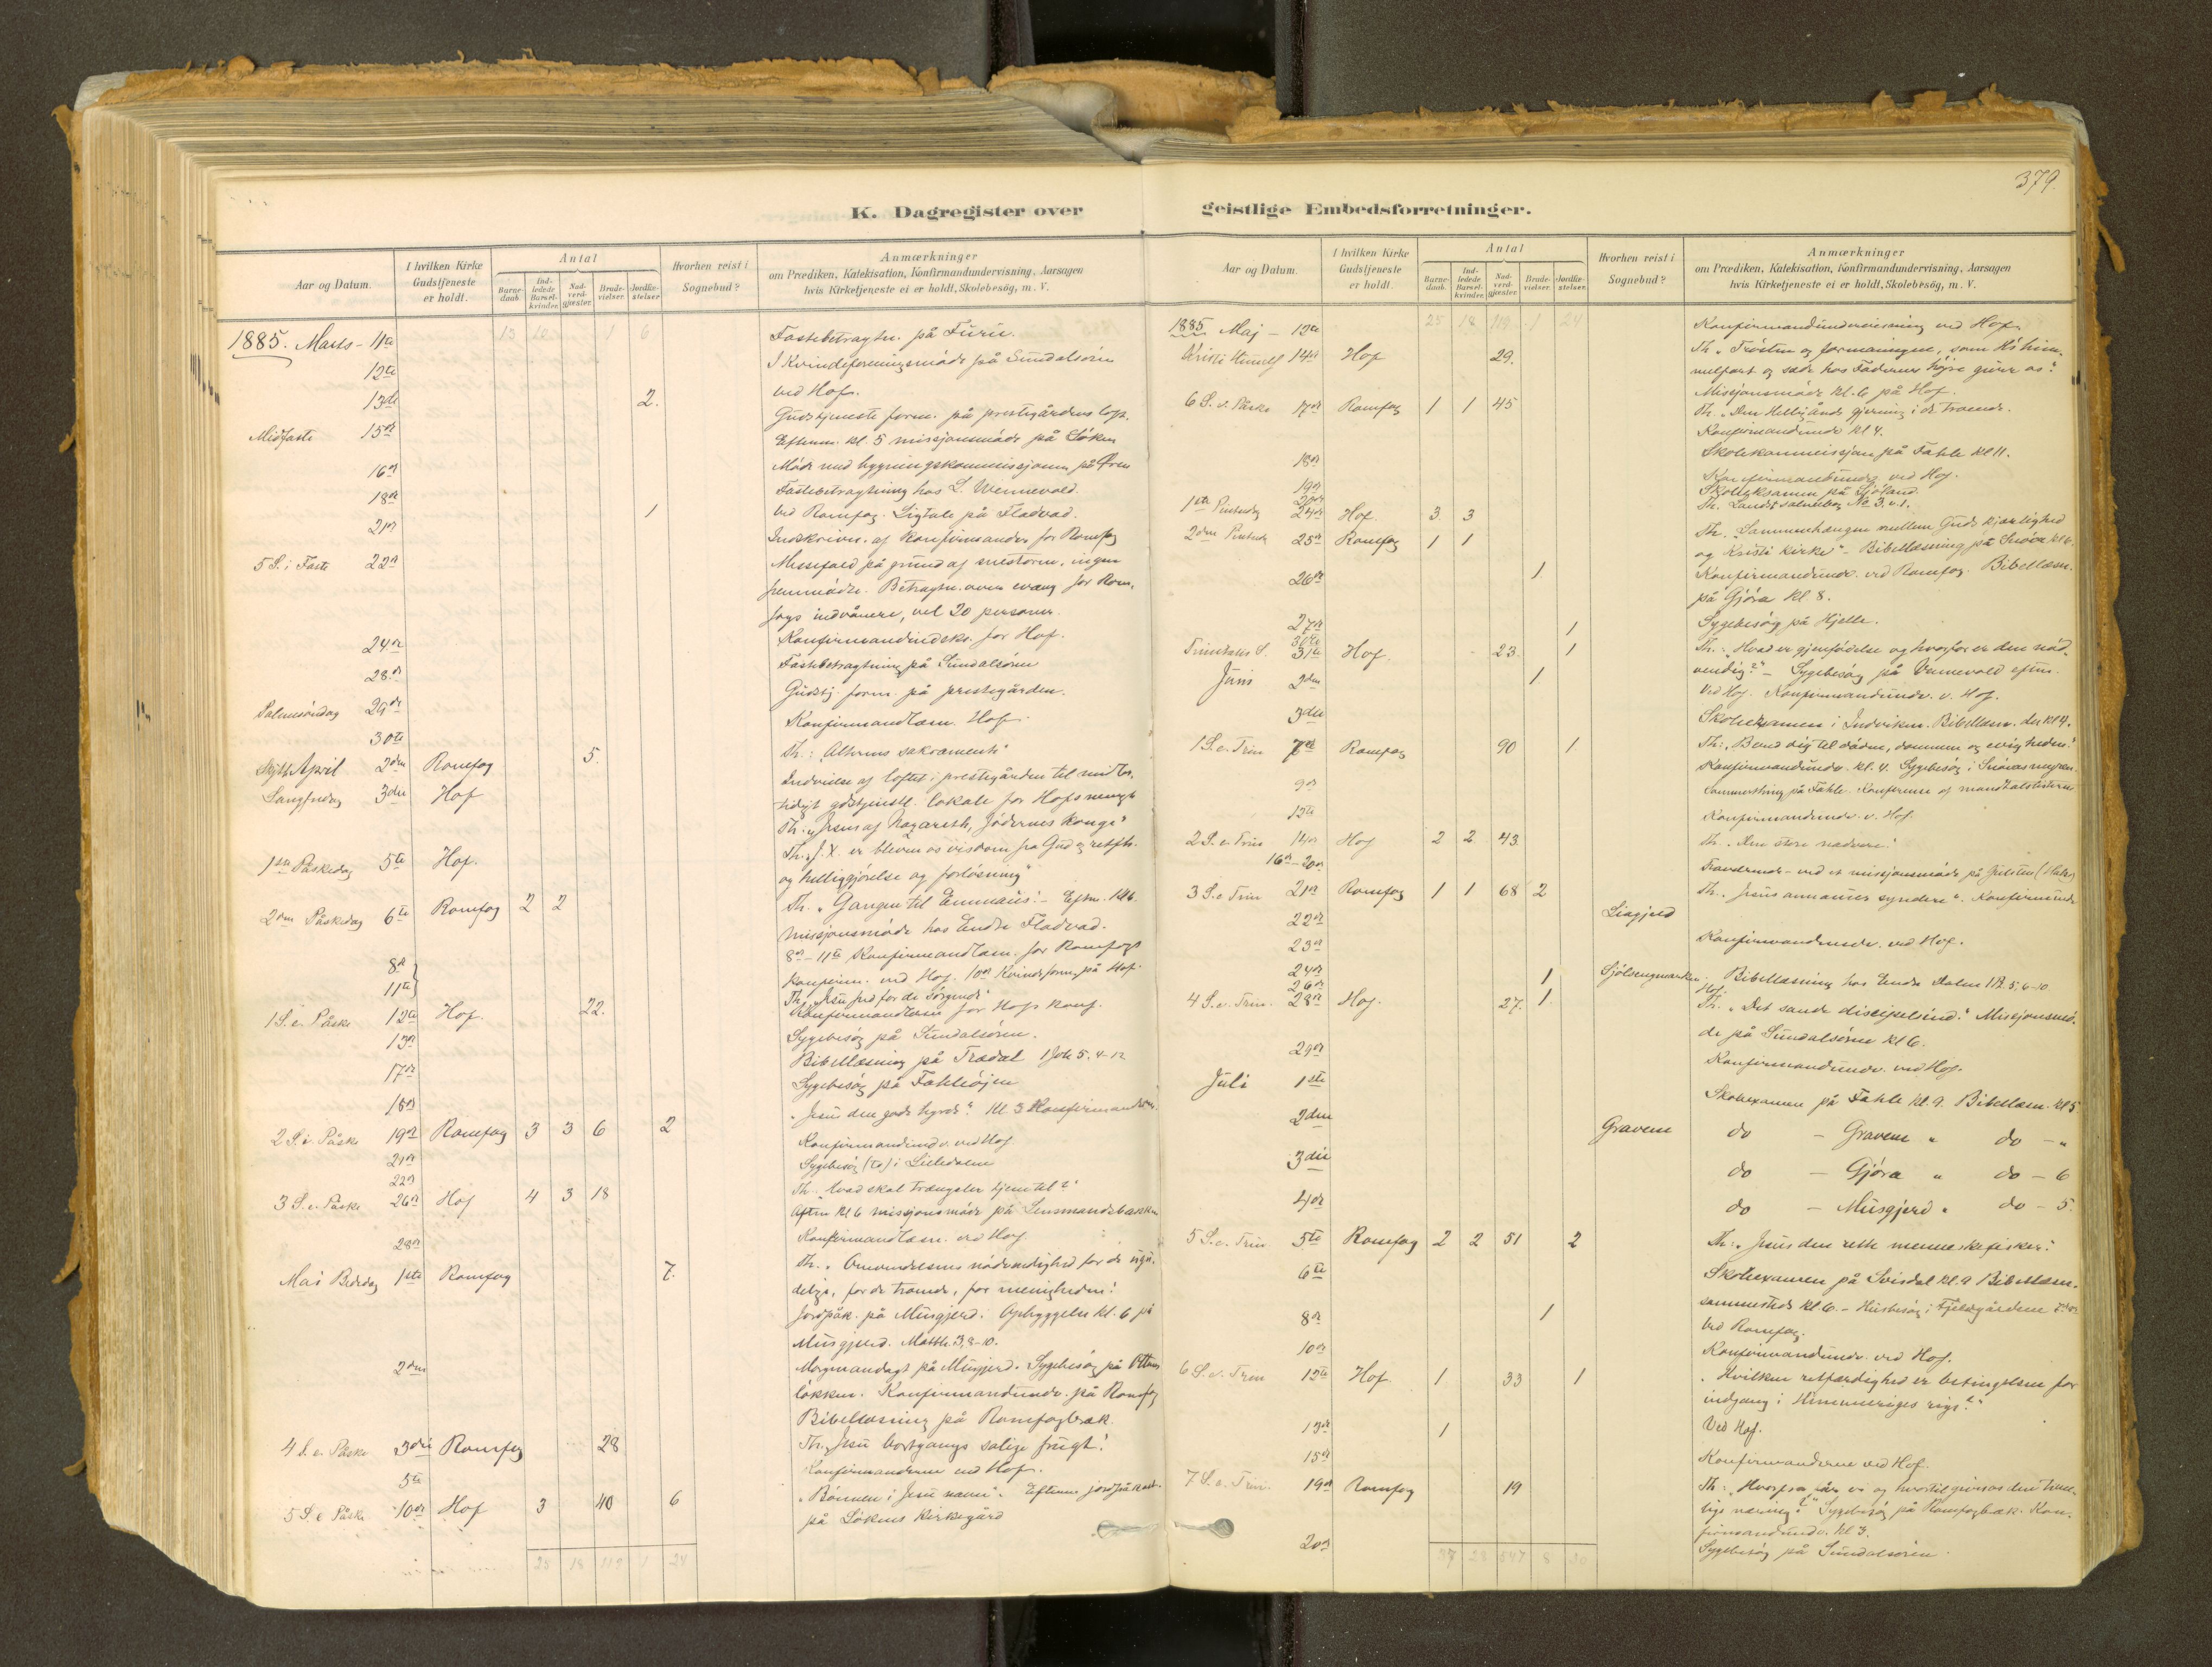 379.
K. Dagregister over geistlige Embedsforretninger.
Aar og Datum.
I hvilken Kirke Gudstjeneste er holdt.
Antal
Barne-daab.
Ind-ledede Barsel-kvinder.
Nad-verd-gjæster.
Brude-vielser.
Jordfæ-stelser.
Hvorhen reist i Sognebud?
Anmærkninger
om Prædiken, Katekisation, Konfirmandundervisning, Aarsagen
hvis Kirketjeneste ei er holdt, Skolebesög, m. V.
1885. Marts - 11te 1 6 Fastebetragtn. på Furu.
12te I Kvindeforeningsmöde på Sundalsören
13de 2. ved Hof.
Midfaste 15de Gudstjeneste form. på prestegårdens loft.
Efterm. kl. 5 missjonsmöde på Löken
16de Möde med bygningskommissjonen på Ören
18de Fastebetragtning hos L. Wennevold.
21de 1 Ved Romfog. Ligtale på Fladvad.
5 S. i Faste 22de Indskrivn. af Konfirmander for Romfog
Messefald på grund af snestorm, ingen
fremmödte. Betragtn. over evang. for Rom-
fogs indvånere, vel 20 personer.
24de Konfirmandindskr. for Hof.
28de Fastebetragtning på Sundalsören
Palmesöndag 29de Gudstj. form. på prestegården.
30te Konfirmandlæsn. Hof.
April 2den Romfog 5. Th.: "Alterens sakramente"
Langfredag 3die Hof Indvielse af loftet i prestegården til midler-
tidigt gdstjenstl. lokale for Hofs menigh.
Th. "Jesus af Nazareth, Jödernes Konge"
1ste Påskedag 5te Hof. Th. "J. X. er bleven os visdom fra Gud og retfh.
og helliggjörelse og forlösning"
2den Påskedag 6te Romfog 2 2 Th. "Gangen til Emmaus". - Eftm. kl 6.
missjonsmöde hos Endre Fladvad.
8de 11te 8de-11te Konfirmandlæsn. for Romfogs
konfirm. ved Hof. 10de Kvindeforen. på Hof.
1 S. e. Påske 12te Hof. 22. Th. "Jesu fred for de sörgende"
13de Konfirmandlæsn for Hofs konf.
Sygebesög på Sundalsören.
17de Bibellæsning på Trædal 1 Joh 5. 4-12
18de Sygebesög på Fahlehöjen
2 S. e. Påske 19de Romfog 3 3 6 2 "Jesus den gode hyrde". Kl 3 Konfirmanderne.
21de Konfirmandundv. ved Hof
22de Sygebesög (to) i Lilledalen
3 S. e. Påske 26de Hof 4 3 18 Th. "Hvad skal trængsler tjene til?"
Eftm kl 6 missjonsmöde på Lensmandsbakken
28de Konfirmandlæsn. ved Hof.
Mai Bededag 1ste Romfog 7. Th. "Omvendelsens nödvendighed for de ugu-
delige, for de troende, for menigheden".
Jordpåk. på Musgjerd. Opbyggelse kl. 6 på
Musgjerd. Matth. 3, 8-10.
2den Morgenandagt på Musgjerd. Sygebesög på
lökken. Konfirmandundv. på Romfog
Bibellæsning på Romfogbæk.
4 S. e. Påske 3die Romfog 28 Th. "Jesu bortgangs salige frugt".
5te Konfirmanderne ved Hof.
5 S. e. Påske 10de Hof 3 40 6 "Bönnen i Jesu navn". Efterm. jordpåkast.
på Lökens Kirkegård
25 18 119 1 24
1885 Maj - 12te 25 18 119 1 24 Konfirmandundervisning ved Hof.
Kristi Himmelf 14de Hof 29. Th. "Trösten og formaningen, som Kr. him-
melfart og sæde hos Faderens höjre giver os".
Missjonsmöde kl. 6 på Hof.
6 S. e. Påske 17de Romfog 1 1 45 Th. "Den Helligånds gjerning i de troende.
Konfirmandundv kl 4.
18de Skolekommissjon på Fahle kl 11.
19de Konfirmandundv ved Hof.
Skoleeksamen på Sjöland.
1ste Pintsedag 24de Hof. 3 3 Th. Landst. salmebog No 3. v. 1.
2den Pintsed. 25de Romfog 1 1 Th. "Sammenhængen mellem Guds kjærlighed
og Kristi kirke" - Bibellæsning på Snöva kl 6.
26de 1 Konfirmandundv. ved Romfog. Bibellæsn.
på Gjöra kl 8.
27de 1 Sygebesög på Hjelle.
30te
Trinitatis S. 31te Hof. 23. 1 Th.: "Hvad er gjenfödelse og hvorfor er den nöd-
vendig?" - Sygebesög på Vennevold eftm.
Juni 2den 1 Ved Hof. Konfirmandundv. v. Hof.
3die Skoleexamen i Indviken. Bibellæsn. der kl 4.
1 S. e. Trin 7de Romfog 90 1 Th.: "Bered dig til döden, dommen og evigheden".
Konfirmandundv. kl. 4. Sygebesög i Snövasmyren
9de på Fahle. Konferense af mandtalslisterne
12te Konfirmandundv. v. Hof.
2 S. e. Trin 14de Hof 2 2 43. Th. "Den store nadvere".
16de-20de ved et missjonsmöde på
3 S. e. Trin 21de Romfog 1 1 68 2 Th. "Jesus annammer syndere". Konfirmundv
22de Liagjerd
23de Konfirmandundv. ved Hof.
24de 1 Sjölsengmarken. Bibellæsning hos Endre Dalen 5. 6-10
26de Hof.
4 S. e. Trin. 28de Hof. 27. 1. Th. "Det sande discipelsind". Missjonsmö-
de på Sundalsören kl 6.
29de Konfirmandundv. ved Hof.
Juli 1ste Skoleexamen på Fahle kl. 9. Bibellæsn. kl 5
2den Gravem do - Gravem " do - "
3die do - Gjöra " do - 6
4de do - Musgjerd " do - 5.
5 S. e. Trin 5te Romfog 2 2 51 2 Th.: "Jesus den rette menneskefisker".
6te Skoleexamen på Svisdal kl. 9 Bibellæsn.
sammesteds kl 6. - Husbesög i Fjeldgårdene
8de 1 Ved Romfog.
10de Konfirmandundv. ved Hof.
6 S. e. Trin 12te Hof. 1 33 1 "Hvilken retfærdighed er betingelsen for
indgang i Himmeriges rige?"
13de 1 Ved Hof.
15de Konfirmanderne ved Hof.
7 S. e. Trin. 19de Romfog 19 Th.: "Hvorfra får vi og hvortil gives os den time-
lige næring?" Sygebesög på Romfogbæk. Kon-
firmandundv. kl 3.
20de Sygebesög på Sundalsören.
37 28 547 8 30